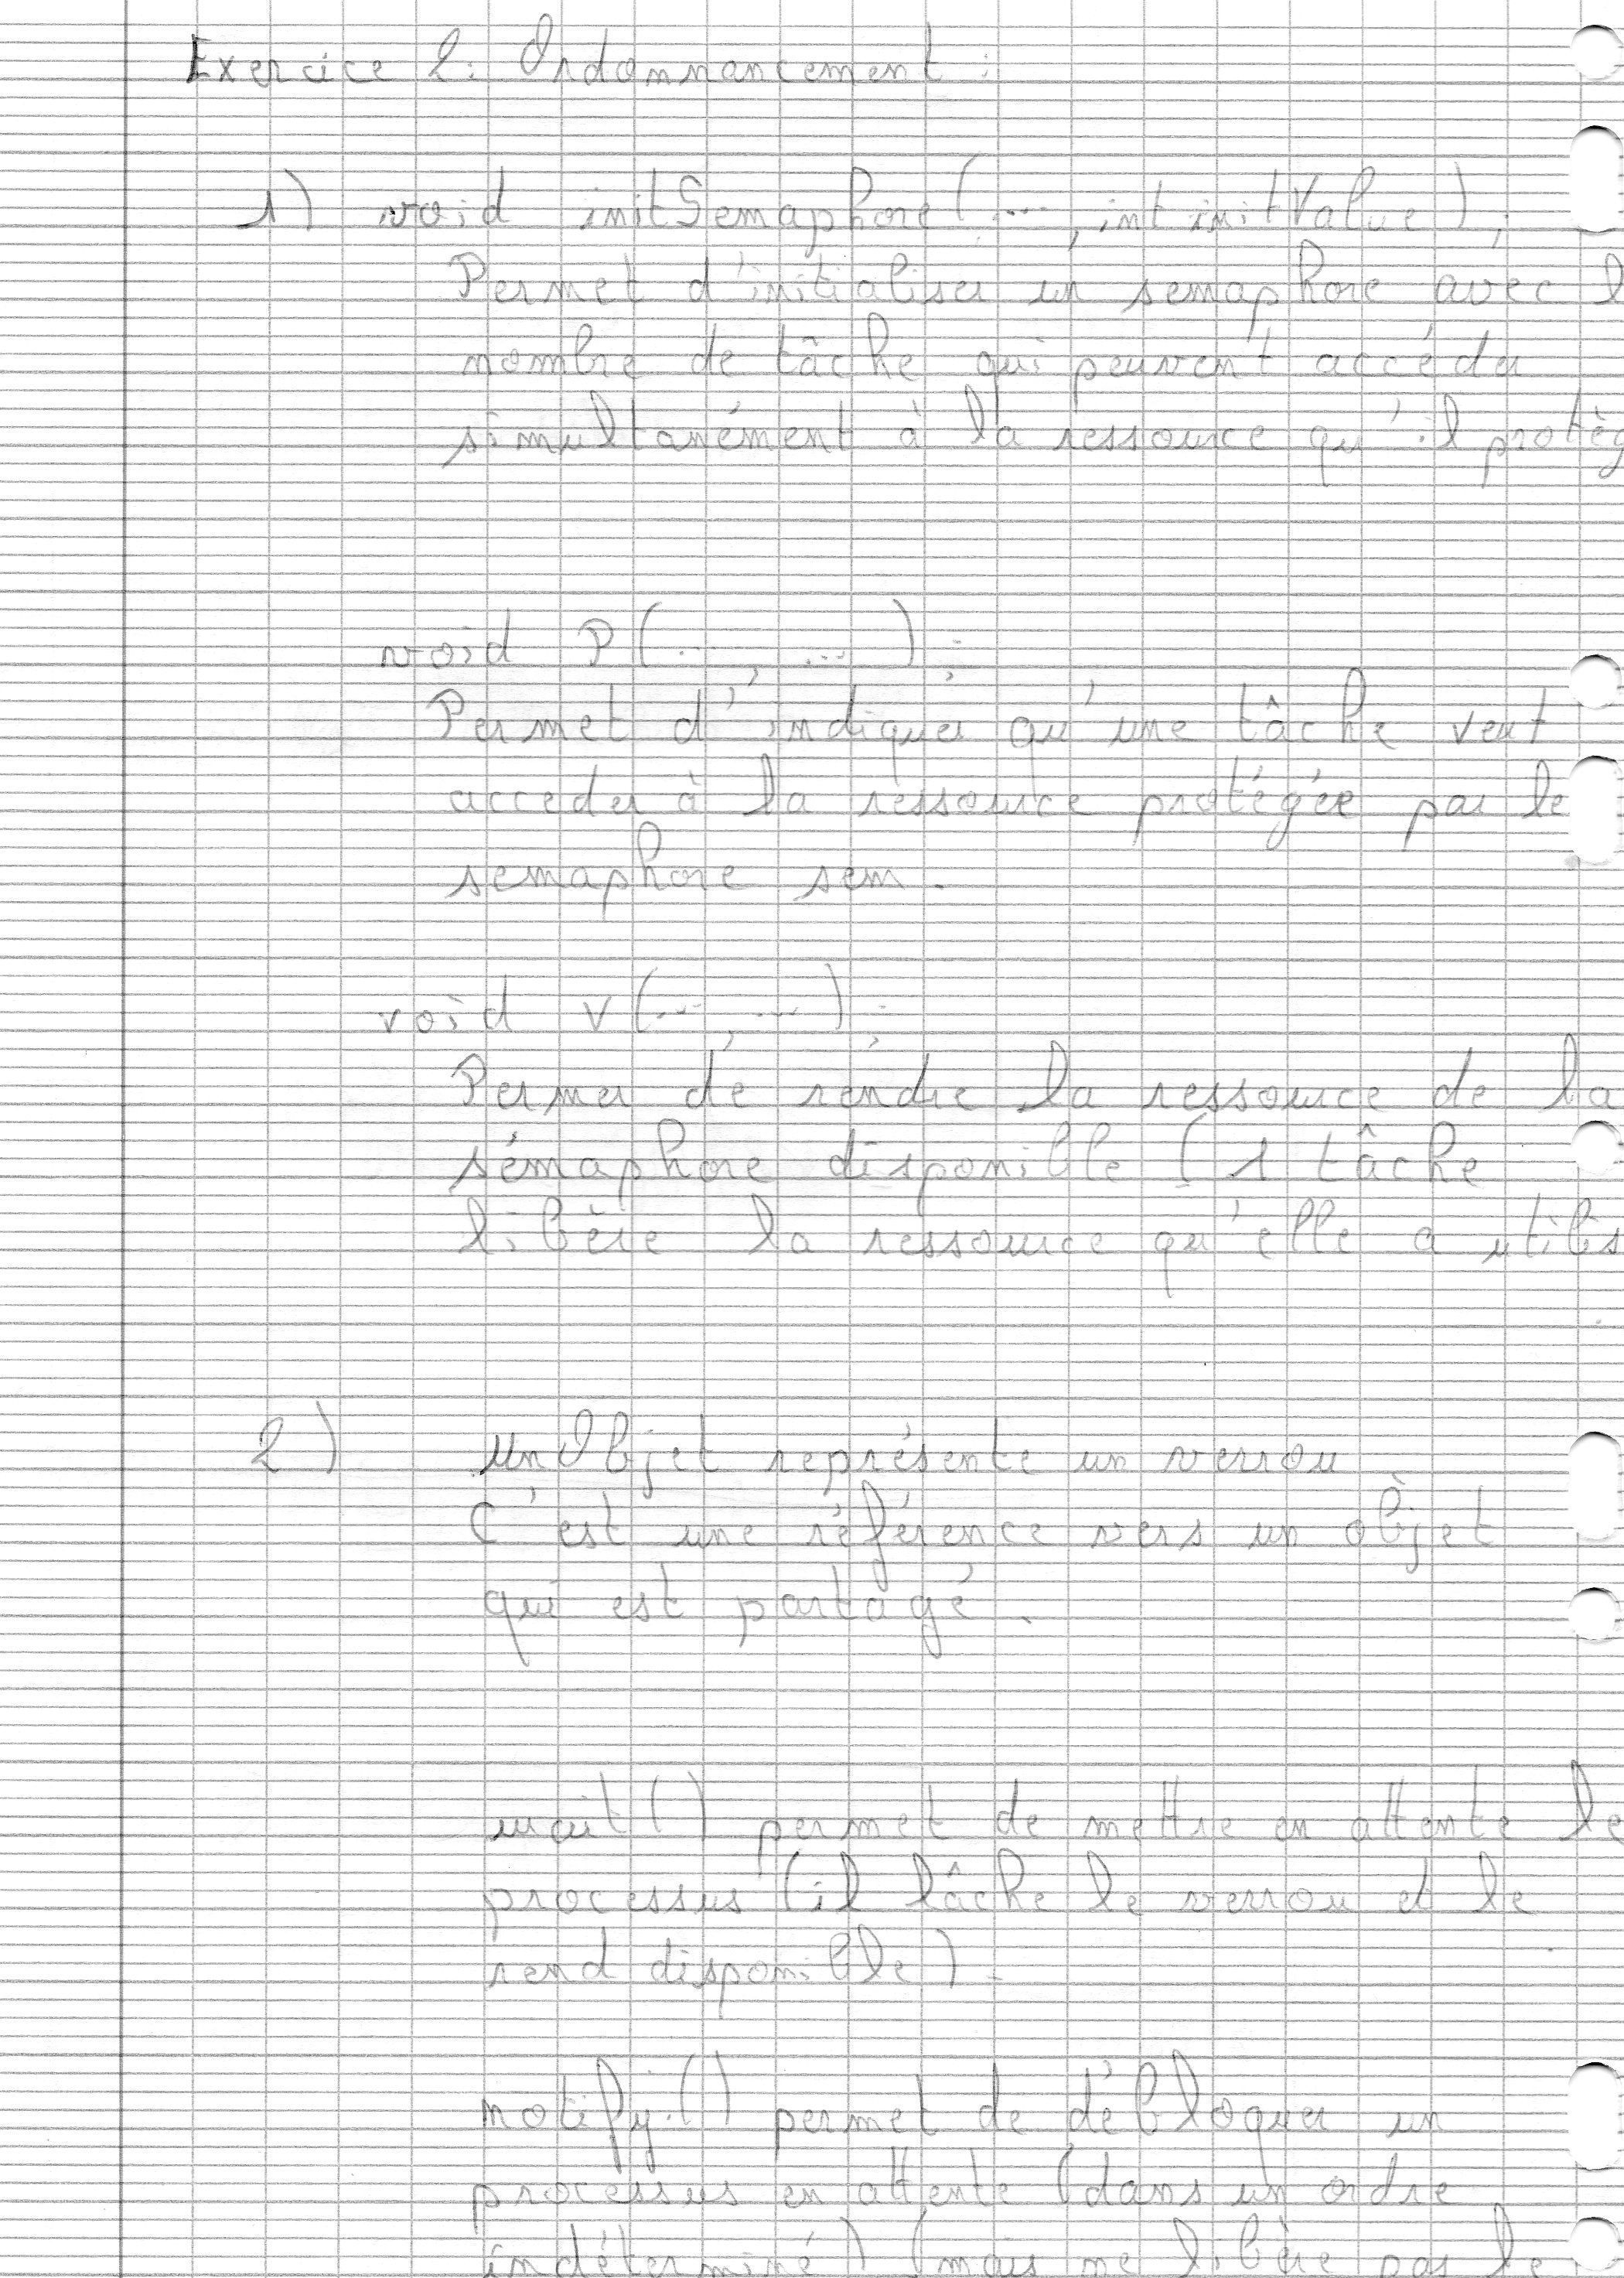 Exercice 2: Ordonnancement :
1) void initSemaphore(... , int initValue);
Permet d'initialiser un semaphore avec l
nombre de tâche qui peuvent accéder
simultanément à la ressource qu'il protèg
void P(... , ...);
Permet d'indiquer qu'une tâche veut
acceder à la ressource protégée par le
semaphore sem.
void V(... , ...);
Permer de rendre la ressource de la
sémaphore disponible (1 tâche
libère la ressource qu'elle a utilis
2) UnObjet représente un verrou
C'est une référence vers un objet
qui est partagé.
wait() permet de mettre en attente le
processus (il lâche le verrou et le
rend disponible).
notify() permet de débloquer un
processus en attente (dans un ordre
indéterminé) (mais ne libère pas le